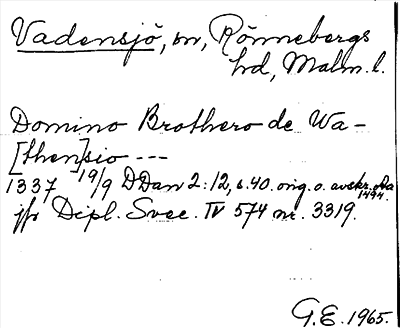 Vadensjö, sn, Rönnebergs
hd, Malm. l.
Domino Brothero de Wa-
[then]sio ---
1337 19/9 DDan 2:12, s. 40. orig. o. avskr. 1494.
jfr Dipl. Svec. IV 574 nr. 3319.
G.E. 1965.